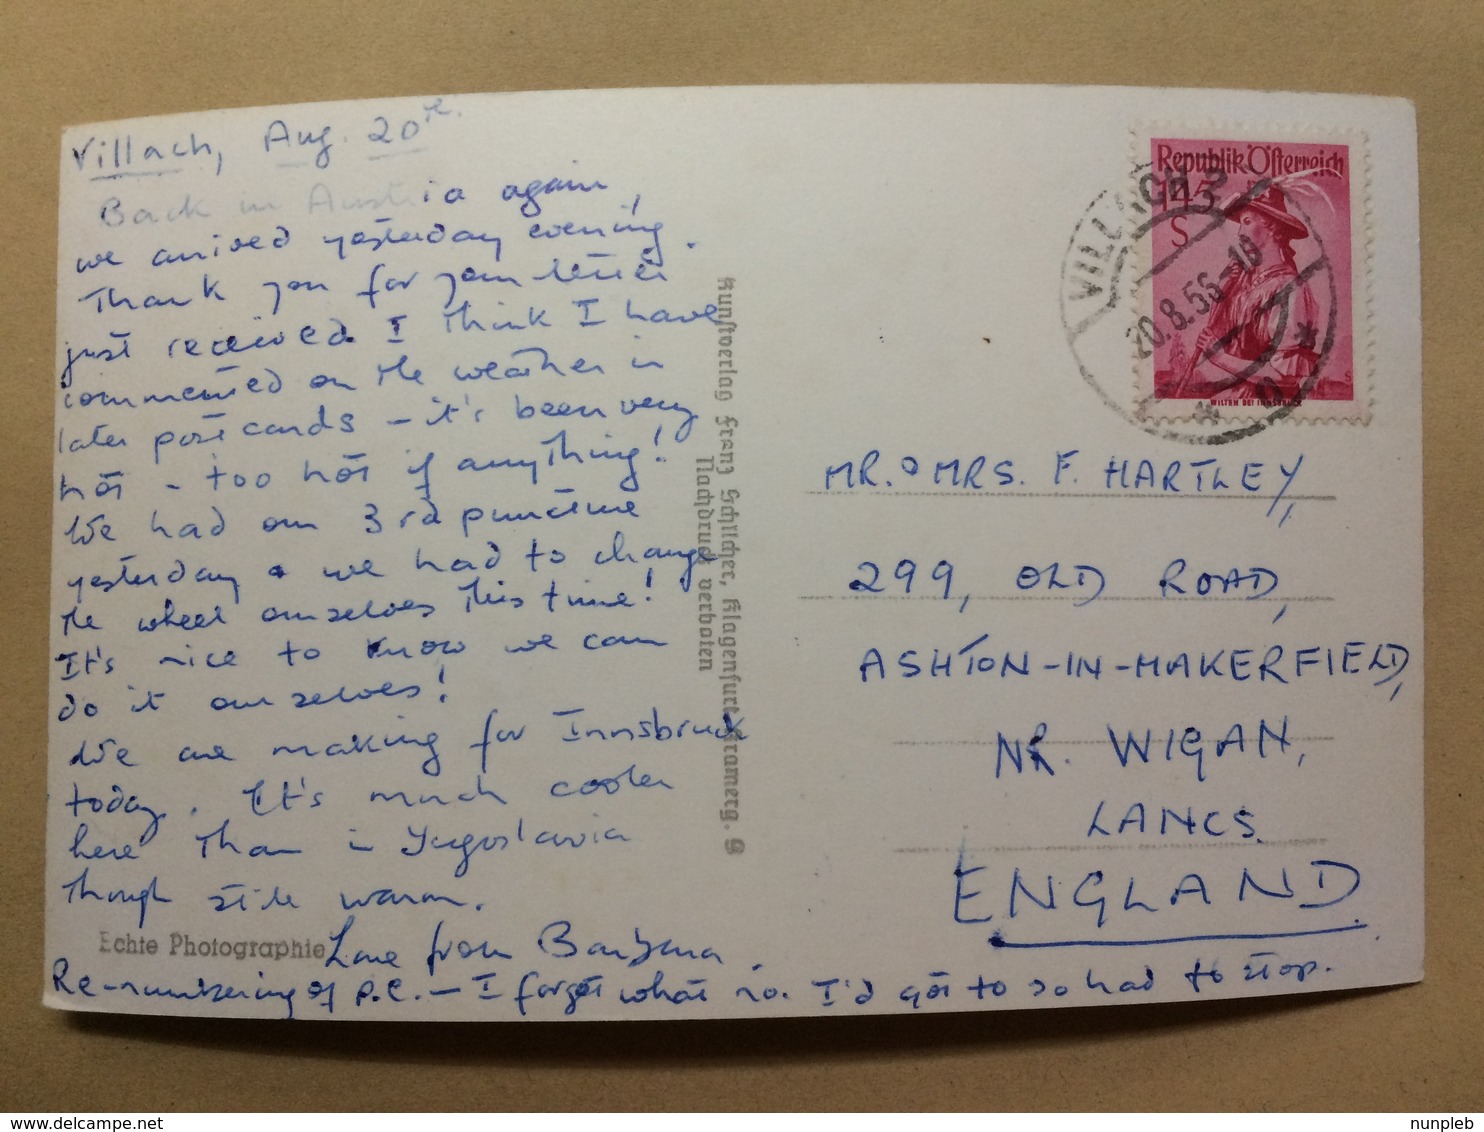 Villach, Aug. 20th.
Back in Austria again,
we arrived yesterday evening.
Thank you for your letter
just received. I think I have
commented on the weather in
later postcards - it's been very
hot - too hot if anything!
We had our 3rd puncture
yesterday & we had to change
the wheel ourselves this time!
It's nice to know we can
do it ourselves!
We are making for Innsbruck
today. It's much cooler
here than in Yugoslavia
though still warm.
Love from Barbara.
Re-numbering of p.c. - I forgot what no. I'd got to so had to stop.
Echte Photographie
Kunstverlag Franz Schilcher, Klagenfurt, Kramerg. 9
Nachdruck verboten
Republik Österreich
1.45
S
WILTEN BEI INNSBRUCK
VILLACH 2
20.8.56-18
MR. & MRS. F. HARTLEY,
299, OLD ROAD,
ASHTON-IN-MAKERFIELD,
NR. WIGAN,
LANCS.
ENGLAND.
nunpleb
Delcampe.net